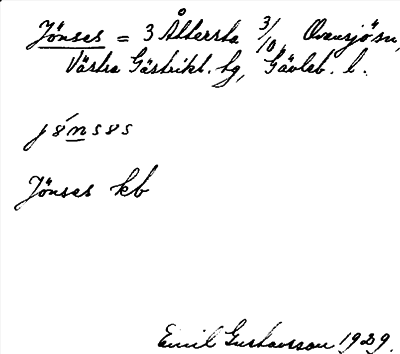 Jönses = 3 Åttersta 3/10, Ovansjö sn,
Västra Gästrikl. tg, Gävleb. l.
jönsɘs
Jönses kb
Emil Gustavsson 1929.